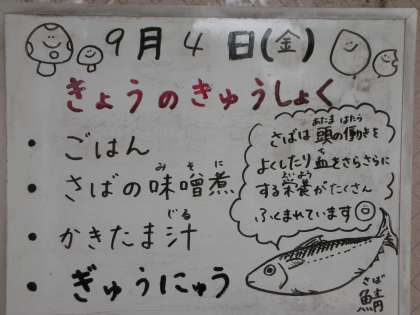 9月4日(金)
きょうのきゅうしょく
・ごはん
・さばの味噌煮
みそに
・かきたま汁
じる
・ぎゅうにゅう
あたま はたら
さばは頭の働きを
ち
よくしたり血をさらさらに
えいよう
する栄養がたくさん
ふくまれています
さば
鯖